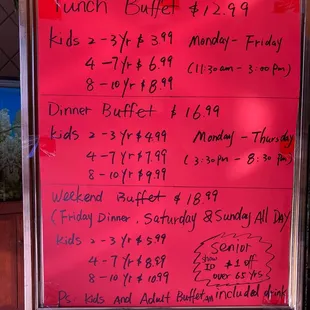 Lunch Buffet $12.99
Kids 2-3 yr $3.99 Monday - Friday
4-7 yr $6.99 (11:30am - 3:00pm)
8-10 yr $8.99
Dinner Buffet $16.99
Kids 2-3 yr $4.99 Monday - Thursday
4-7 yr $7.99 (3:30pm - 8:30pm)
8-10 yr $9.99
Weekend Buffet $18.99
(Friday Dinner, Saturday & Sunday All DAY
Kids 2-3 yr $5.99
4-7 yr $8.99
8-10 yr $10.99
Senior
show ID $1 off
over 65 yrs
Ps: Kids And Adult Buffet included drink